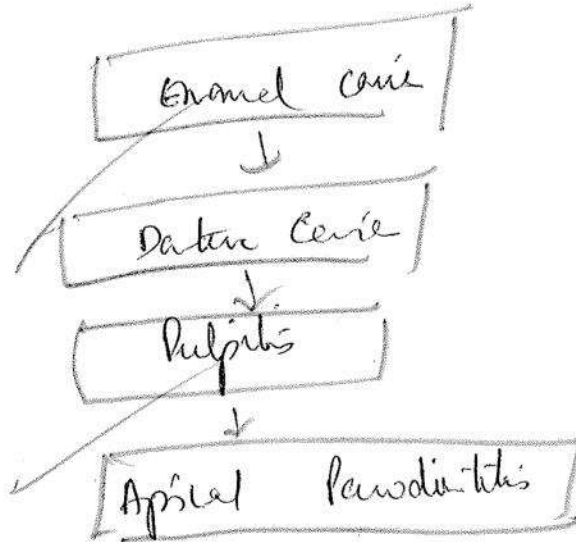 Enamel carie
Dentin Carie
Pulpitis
Apical Parodontitis